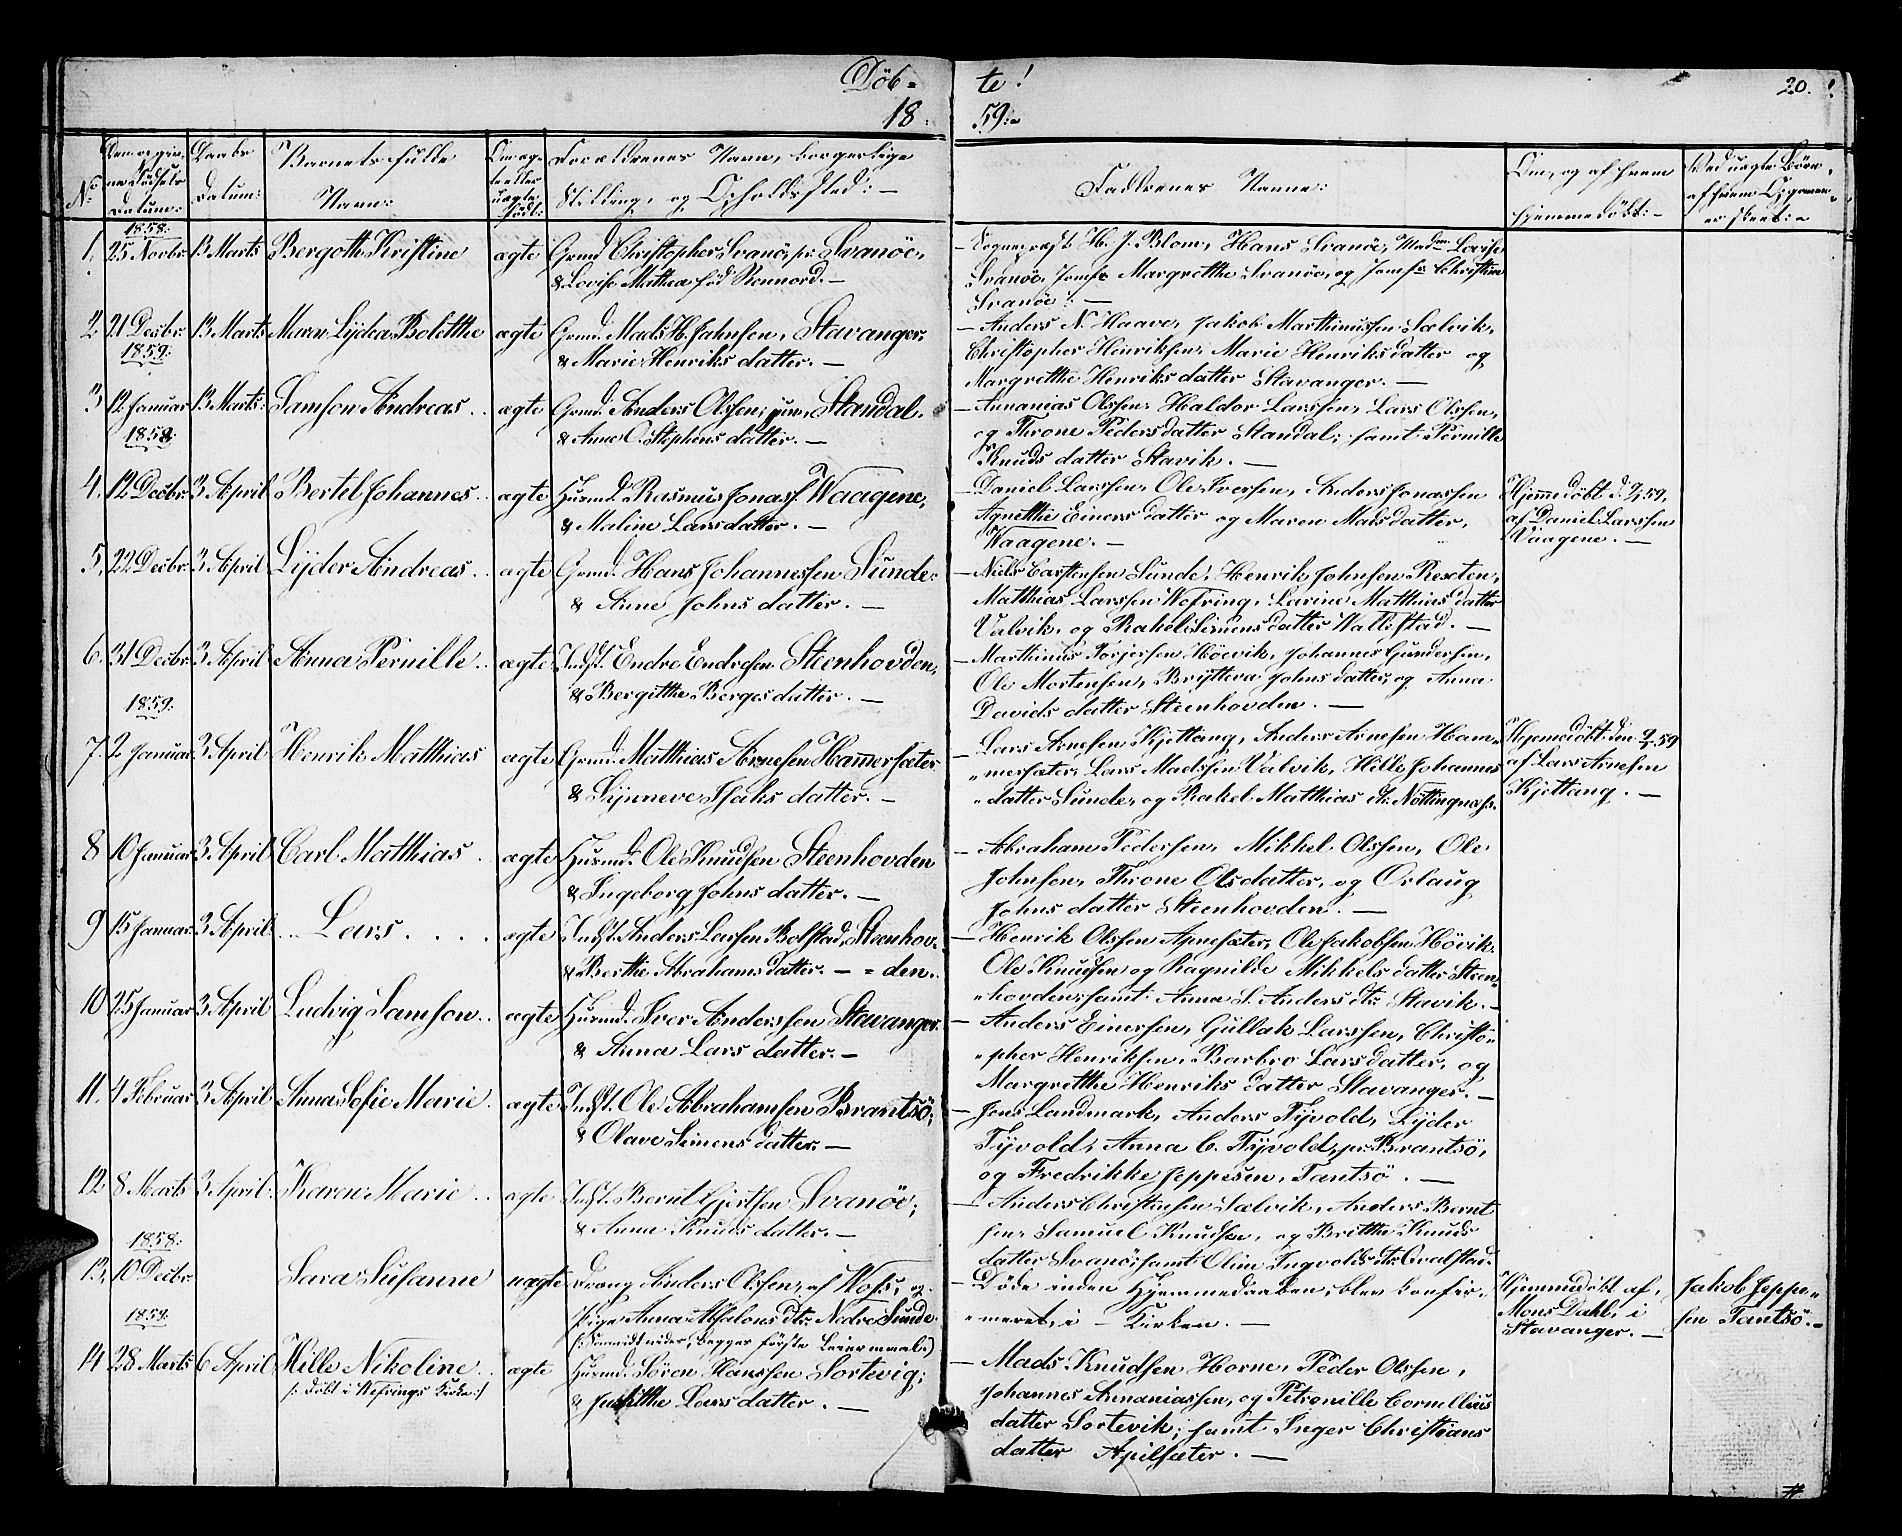 Döb-
te!
20.
18
59:
No
Daabs
Datum:
Barnets fulde
Navn:
Forældrenes Navn, borgerlige
Stilling, og Opholdssted:-
Faddrenes Navne:
Om, og af hvem
hjemmedöbt:-
1858:
1. 25 Novbr. 13 Marts Bergoth Kristine ægte Grmd Christopher Svanöe, pr Svanöe,
& Lovise Mathea föd Nennord.-
- Sogneprest H. J. Blom, Hans Svanöe, Madm Lovise
Svanöe, Jomfr Margrethe Svanöe, og Jomfr Christine
Svanöe.-
2. 21 Decbr. 13 Marts Maren Lydea Bolethe ægte Grmd. Mads H. Jahnsen, Stavanger,
& Marie Henriks datter.-
- Anders N. Haave, Jakob Marthinussen Sælvik,
Christopher Henriksen, Marie Henriksdatter og
Margrethe Henriks datter Stavanger.-
1859:
3 12 Januar 13 Marts: Samson Andreas ægte Grmd. Anders Olssen, jun, Standal,
& Anne O. Stephens datter.-
- Annanias Olssen, Haldor Larssen, Lars Olssen,
og Throne Pedersdatter Standal; samt Pernille
Knuds datter Stavik.-
1858:
4. 12 Decbr. 3 April Bertel Johannes ægte Husmd. Rasmus Jonass. Waagene,
& Maline Larsdatter.-
- Daniel Larssen, Ole Iversen, Anders Jonassen
Agnethe Einers datter og Maren Madsdatter,
Waagene.-
Hjemmedöbt d: 2/1 59,
af Daniel Larssen
Vaagene.-
5, 22 Decbr. 3 April Lyder Andreas ægte Grmd. Hans Johannessen Sunde
& Anne Johns datter.-
- Niels Carstensen Sunde, Henrik Johnsen Rexten,
Matthias Larssen Wefring, Larine Matthias datter
Valvik, og Rakel Simens datter Wallestad.-
6. 31 Decbr. 3 April Anna Pernille ægte Indst. Endre Endresen Steenhovden,
& Bergithe Borgesdatter.-
- Marthinus Torjersen Höevik, Johannes Gundersen,
Ole Mortensen, Britheva Johns datter, og Anna
Davids datter Steenhovden.-
1859:
7. 2 Januar 3 April Henrik Matthias ægte Grmd. Matthias Arnesen Hammersæter
& Synneve Isaks datter.-
- Lars Arnesen Kjettang, Anders Arnesen Ham-
mersæter, Lars Madssen Valvik, Hille Johannes
datter Sunde, og Rakel Matthias dtr. Nöttingnæss.
Hjemedöbt den 9/1 59
af Lars Arnesen
Kjettang.-
8 10 Januar 3 April Carl Matthias ægte Husmd. Ole Knudsen Steenhovden
& Ingeborg Johns datter.-
- Abraham Pedersen, Mikkel Olssen, Ole
Johnsen, Throne Olsdatter, og Orlaug
Johns datter Steenhovden.-
9 15 Januar 3 April Lars ægte Indst. Anders Larsen Bolstad, Steenhov-
& Berthe Abrahamsdatter.- = den.
- Henrik Olssen Apnesæter, Ole Jakobsen Hövik,
Ole Knudsen og Ragnilde Mikkels datter Steen-
hovden, samt Anna S. Anders dtr Stavik.-
10 25 Januar 3 April Ludvig Samson ægte Husmd. Iver Anderssen Stavanger
& Anna Lars datter.-
- Anders Einersen, Gullak Larssen, Christo-
pher Henriksen, Barbro Larsdatter, og
Margrethe Henriks datter Stavanger.-
11. 4 Februar 3 April Anna Sofie Marie ægte Indst. Ole Abrahamsen Brantsö,
& Olave Simens datter.-
- Jens Landmark, Anders Tyvold, Lyder
Tyvold, Anna C. Tyvold, pr. Brantsö,
og Fredrikke Jeppesen, Tantsö.-
12. 8 Marts 3 April Karen Marie ægte Indst. Bernt Gjertsen Svanöe,
& Anna Knuds datter.-
- Anders Christensen Sælvik, Anders Bernt
sen, Samuel Knudsen, og Brithe Knuds
datter Svanö, samt Oline Ingvolds dtr. Qvalstad.
1858:
13, 10 Decbr. Sara Susanne uægte Dreng Anders Olssen, af Woss, og
Pige Anna Absalons dtr. Nedre Sunde
begges förste Leiermaal.)
- Döde inden Hjemmedaaben, blev confir-
meret, i Kirken.-
Hjemmedöbt af,
Mons Dahl, i
Stavanger.-
Jakob Jeppe-
sen Tantsö.-
1859.
14 28 Marts 6 April Hille Nikoline ægte Husmd. Sören Hanssen Sortevig,
/: döbt i Wefrings Kirke:/
& Judithe Lars datter.-
- Mads Knudsen Horne, Peder Olssen,
Johannes Annaniassen, og Petronille Cornellius
datter Sortevik; samt Inger Christians
datter Apilsæter.-